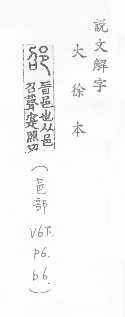 說文解字
大徐本
邵
晉邑也从邑
召聲寔照切
(邑部 V6下. P6. b6.)